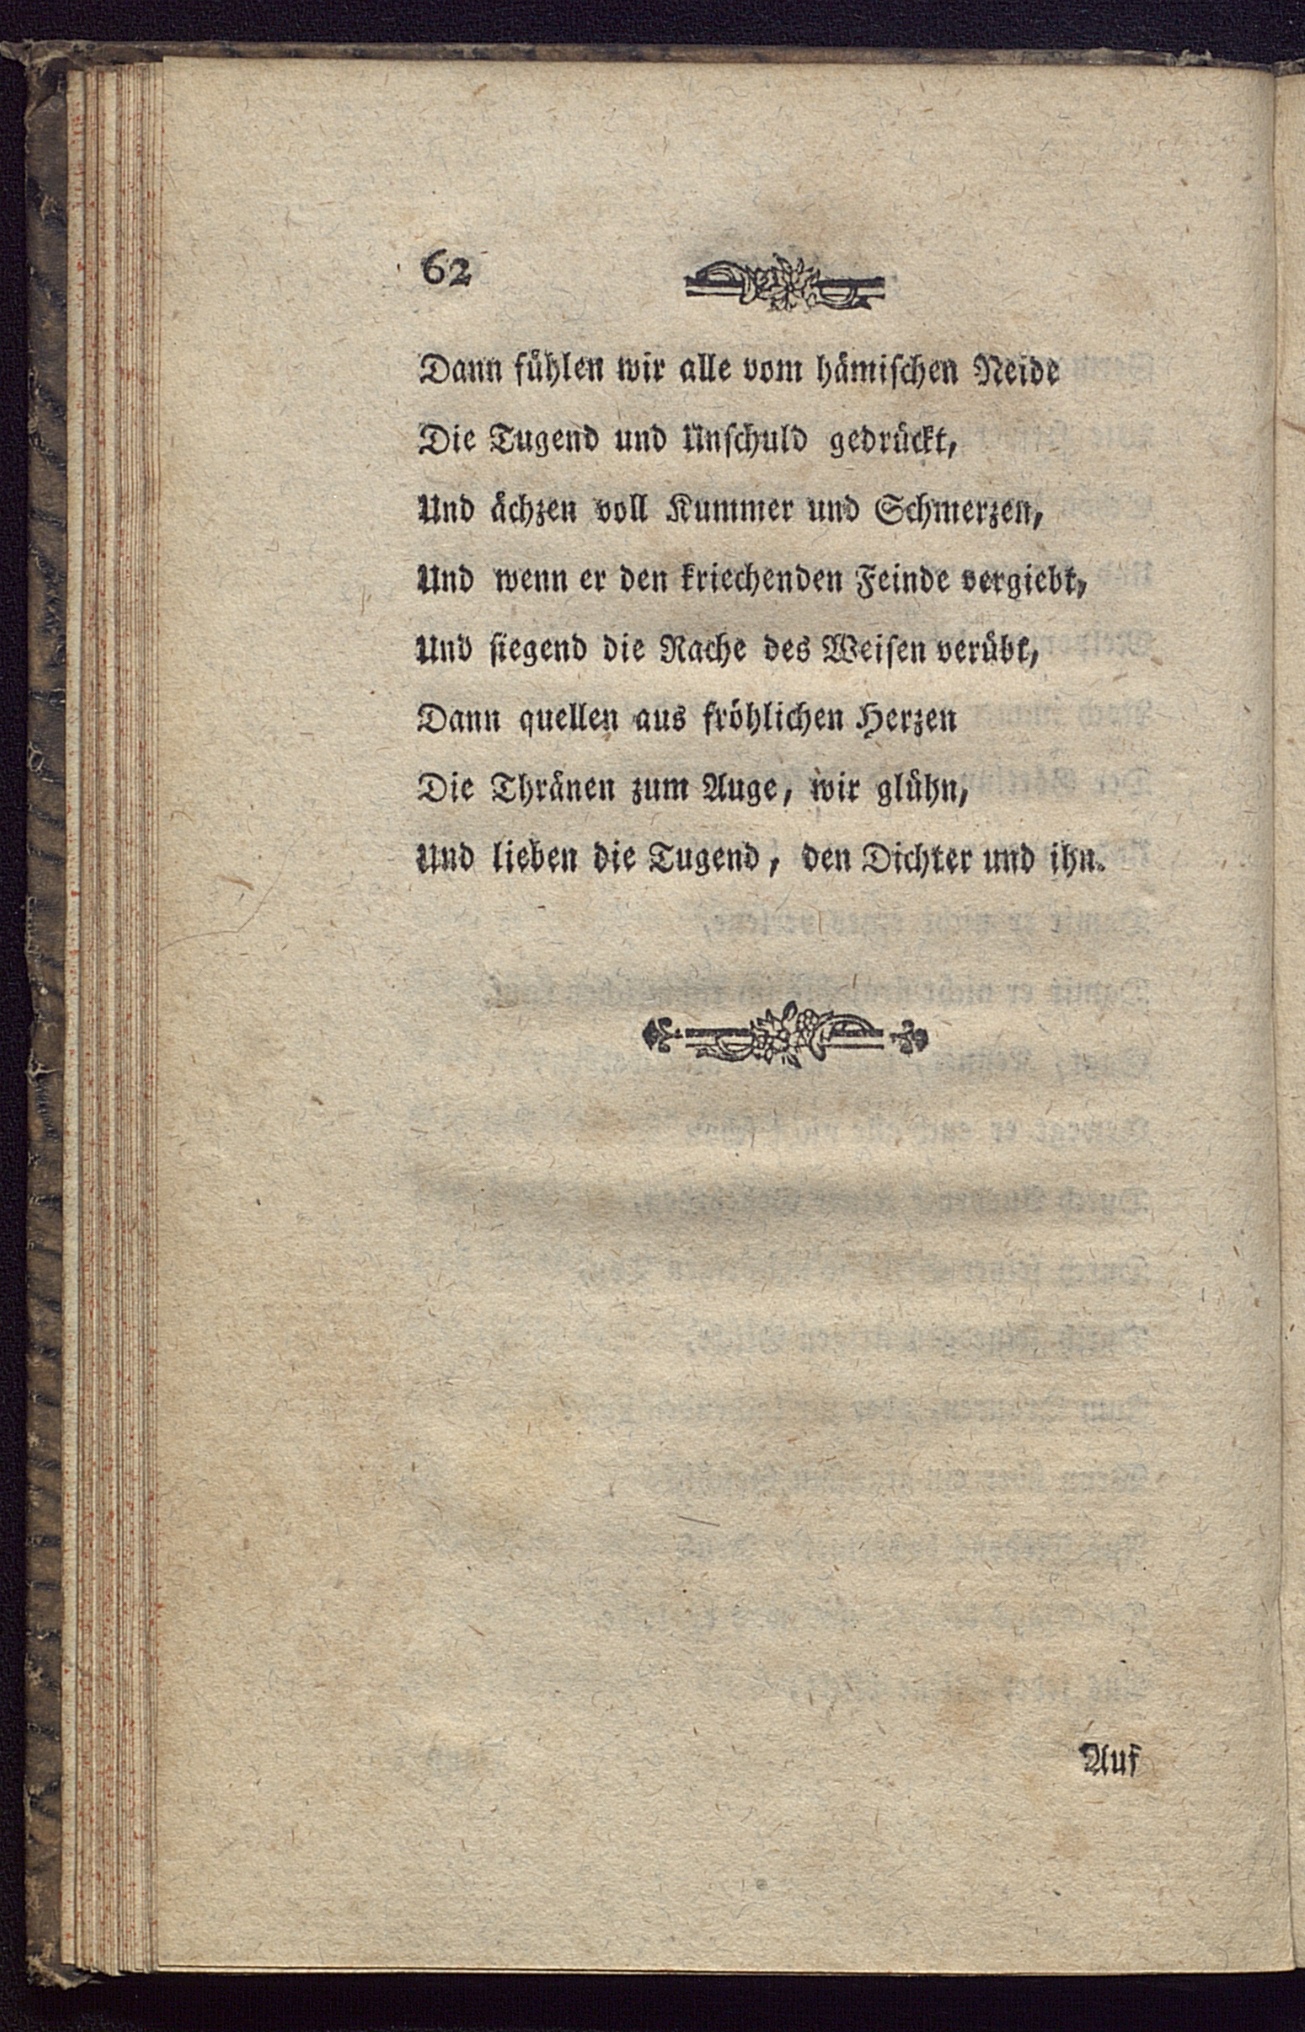 62
Dann fühlen wir alle vom hämischen Neide
Die Tugend und Unschuld gedrückt,
Und ächzen voll Kummer und Schmerzen,
Und wenn er den kriechenden Feinde vergiebt,
Und siegend die Rache des Weisen verübt,
Dann quellen aus fröhlichen Herzen
Die Thränen zum Auge, wir glühn,
Und lieben die Tugend, den Dichter und ihn.
Auf